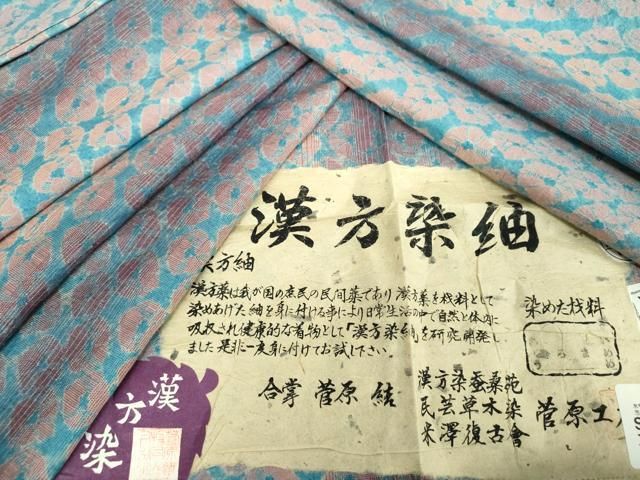 漢方染紬
漢方紬
漢方薬は我が国の庶民の民間薬であり漢方薬を材料として
染めあげた紬を身に付ける事により日常生活の中で自然と体内に
吸収され健康的な着物として「漢方染紬」を研究開発し
ました是非一度身に付けてお試し下さい。
合掌 菅原 結
染めた材料
漢方染蚕桑苑
民芸草木染
米澤復古會
菅原工
漢方染